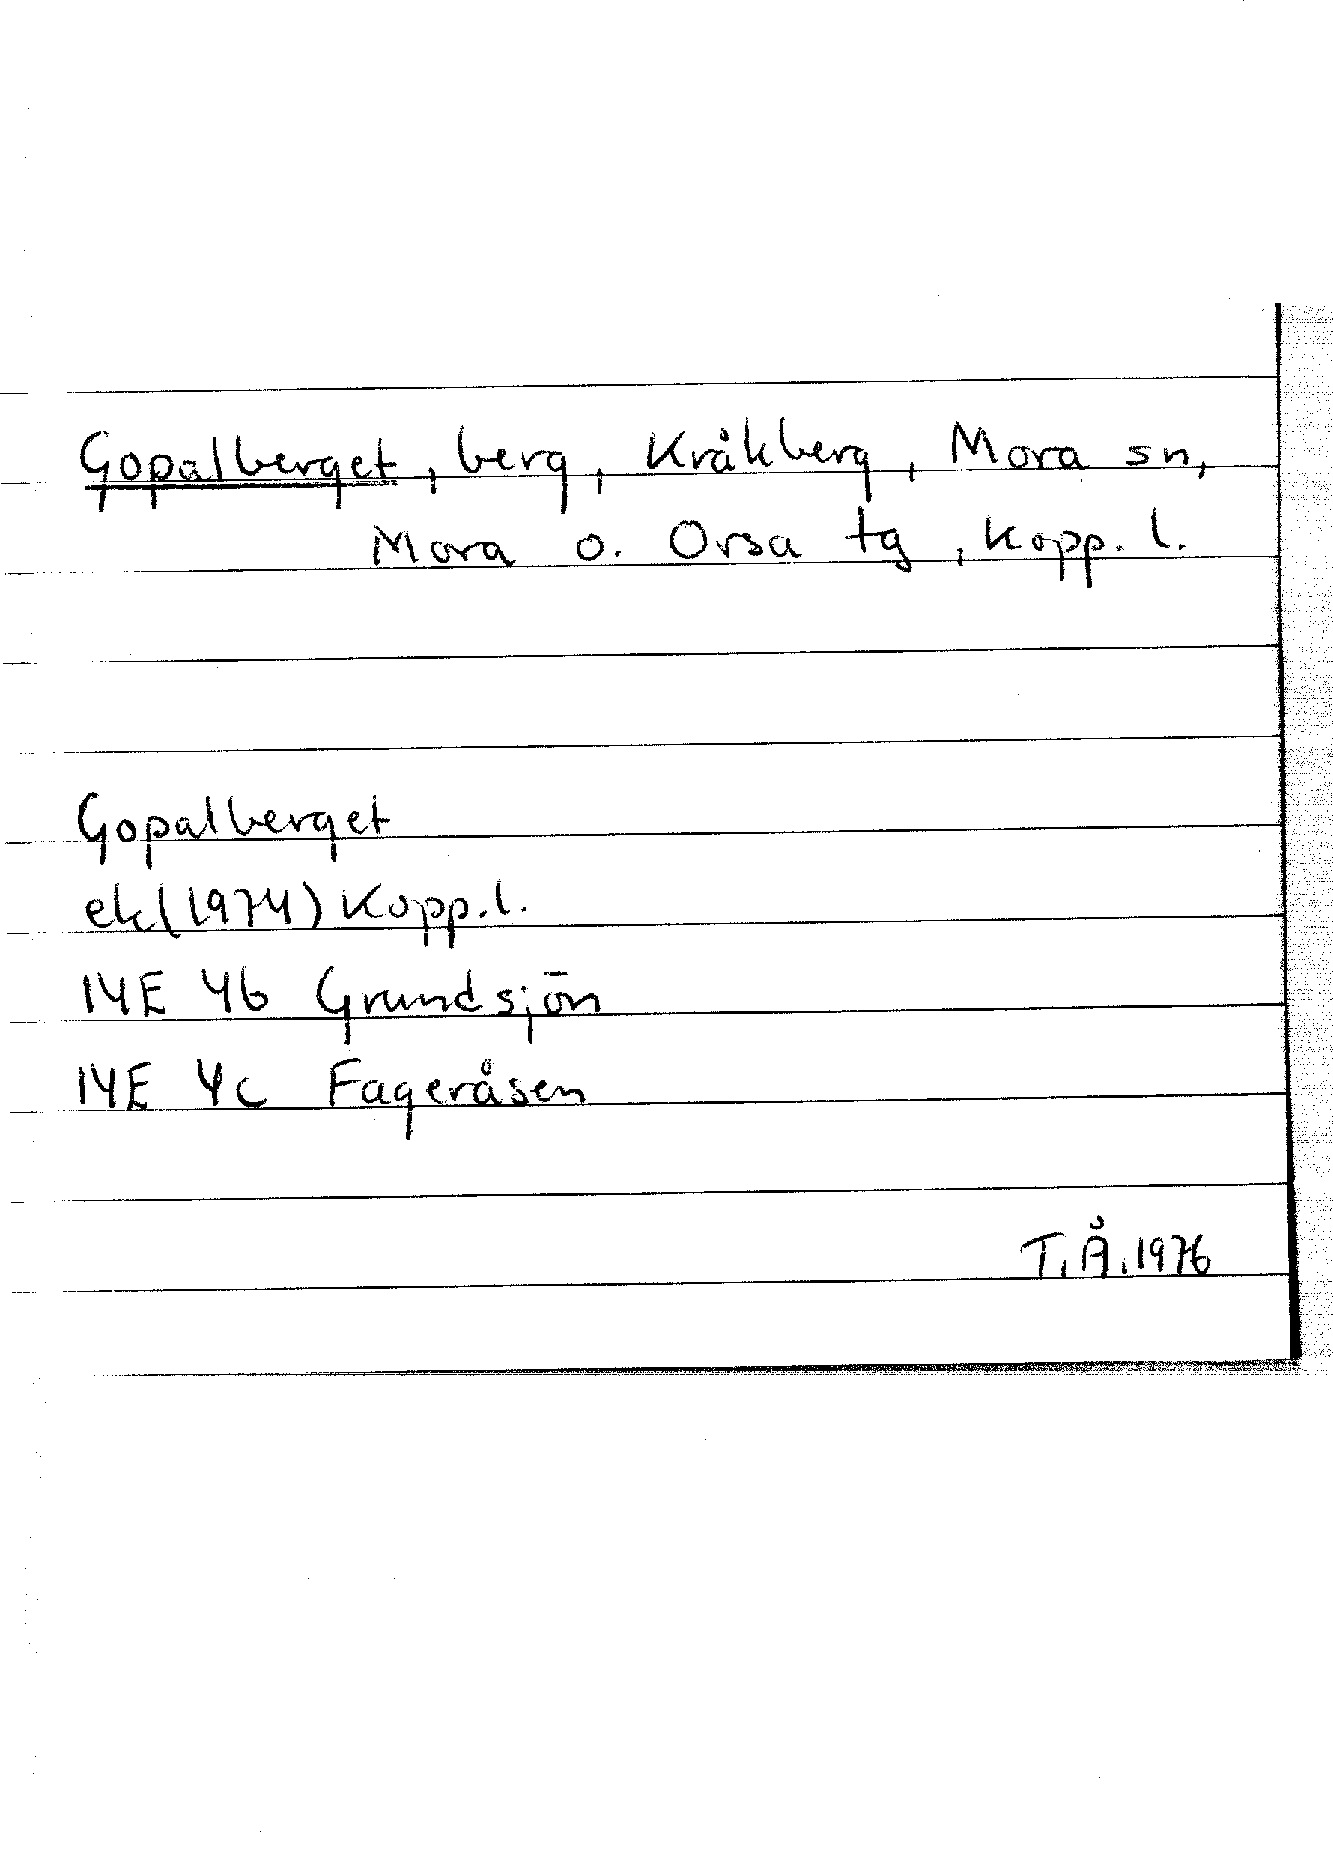 Gopalberget, berg, Kråkberg, Mora sn,
Mora o. Orsa tg, Kopp. l.
Gopalberget
ek(1974) Kopp.l.
14E 4b Grundsjön
14E 4c Fageråsen
T.Å.1976